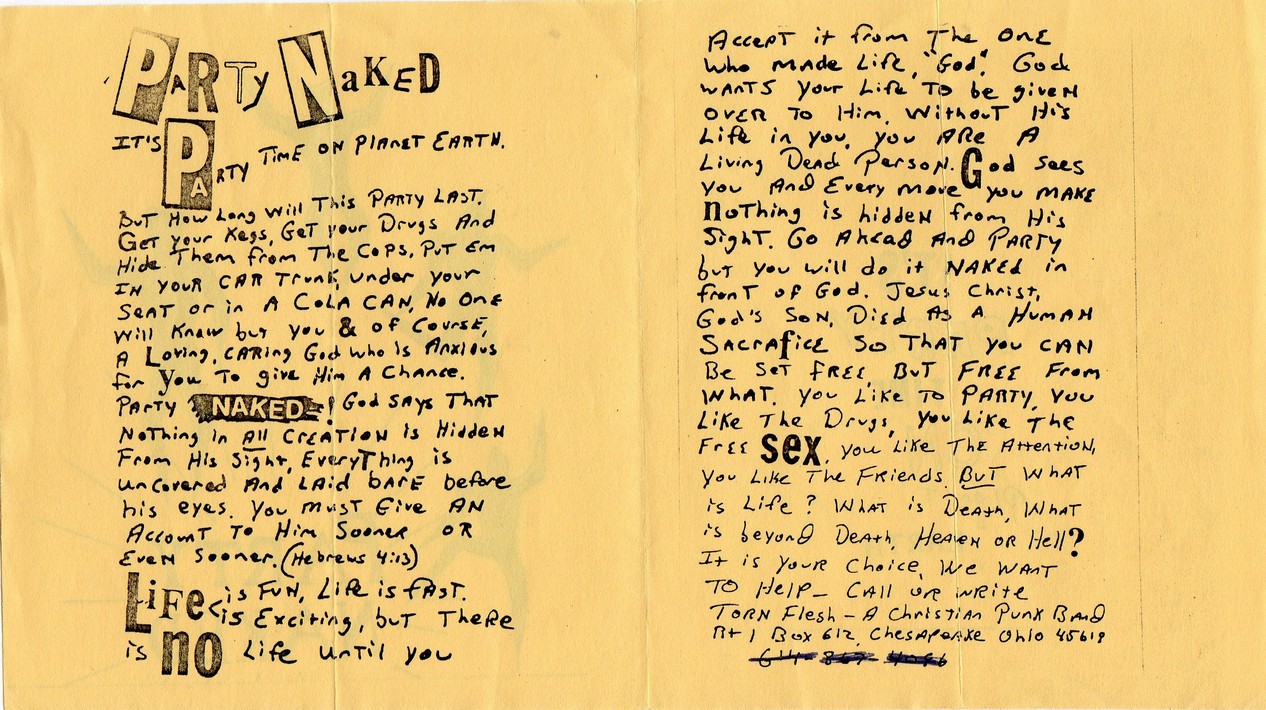 PARTY NAKED
IT'S PARTY TIME ON PLANET EARTH.
But How Long Will This PARTY LAST.
Get your Kegs, Get your Drugs And
Hide Them from The Cops, Put Em
IN YOUR CAR Trunk, under your
Seat or in A Cola CAN, No One
will Know but you & of Course,
A Loving, CARing God who is Anxious
for you To give Him A Chance.
Party NAKED! God says That
Nothing in All Creation is Hidden
From His Sight, Everything is
uncovered And Laid bare before
his eyes. You must Give AN
Account To Him Sooner OR
Even Sooner. (Hebrews 4:13)
Life is Fun, Life is fast.
<is Exciting, but There
is no Life until you
Accept it from The One
who made Life, "God". God
wants your Life To be given
over To Him. Without His
Life in you, you Are A
Living Dead Person. God sees
you And Every move you make
nothing is hidden from His
Sight. Go Ahead And Party
but you will do it NAKED in
front of God. Jesus Christ,
God's Son, Died As A Human
Sacrafice So That you CAN
Be Set free. But Free From
What. You Like To Party, You
Like The Drugs, you Like The
Free sex, you Like The Attention,
you Like The Friends. But What
is Life? What is Death, What
is beyond Death, Heaven or Hell?
It is your Choice, We Want
To Help - Call or write
Torn Flesh - A Christian Punk Band
Rt 1 Box 612, Chesapeake Ohio 45619